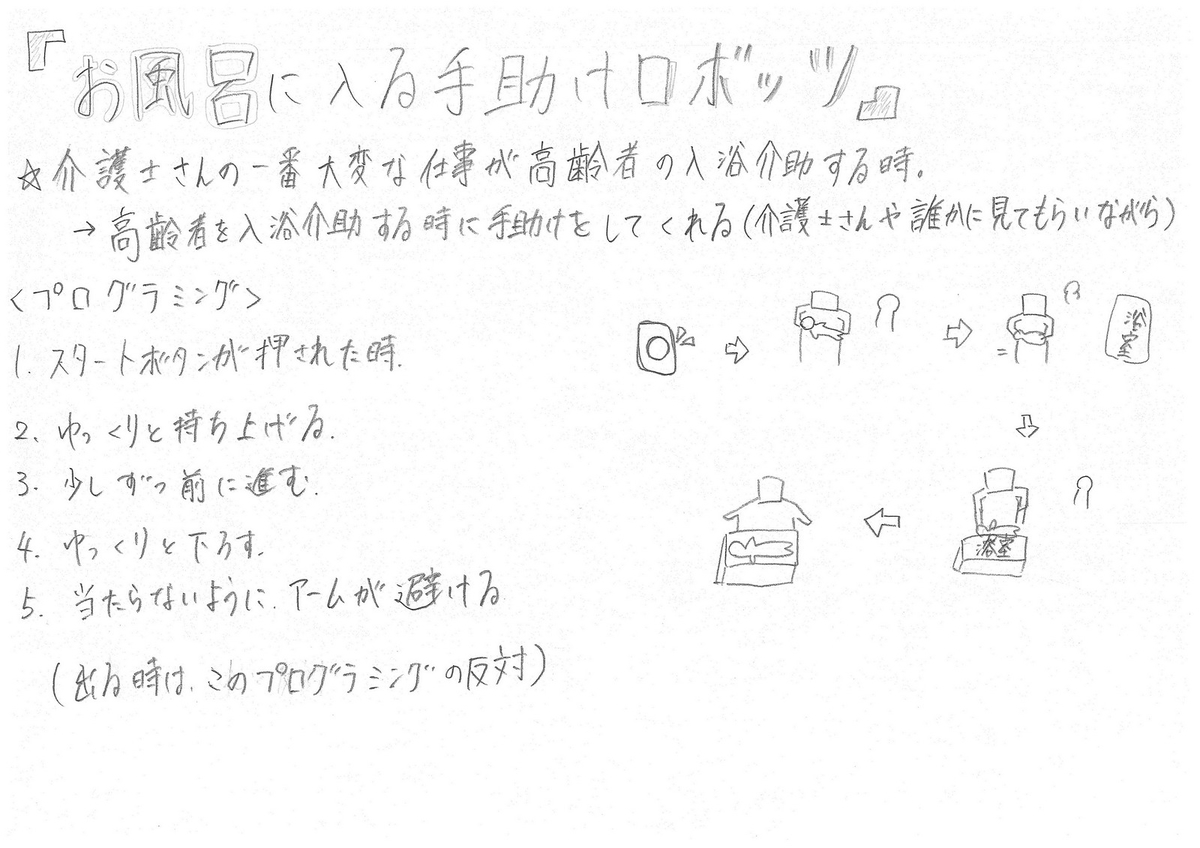 『お風呂に入る手助けロボッツ』
☆介護士さんの一番大変な仕事が高齢者の入浴介助する時。
→高齢者を入浴介助する時に手助けをしてくれる(介護士さんや誰かに見てもらいながら)
<プログラミング>
1. スタートボタンが押された時.
2. ゆっくりと持ち上げる.
3. 少しずつ前に進む.
4. ゆっくりと下ろす.
5. 当たらないように.アームが避ける
(出る時は.このプログラミングの反対)
浴室
浴室